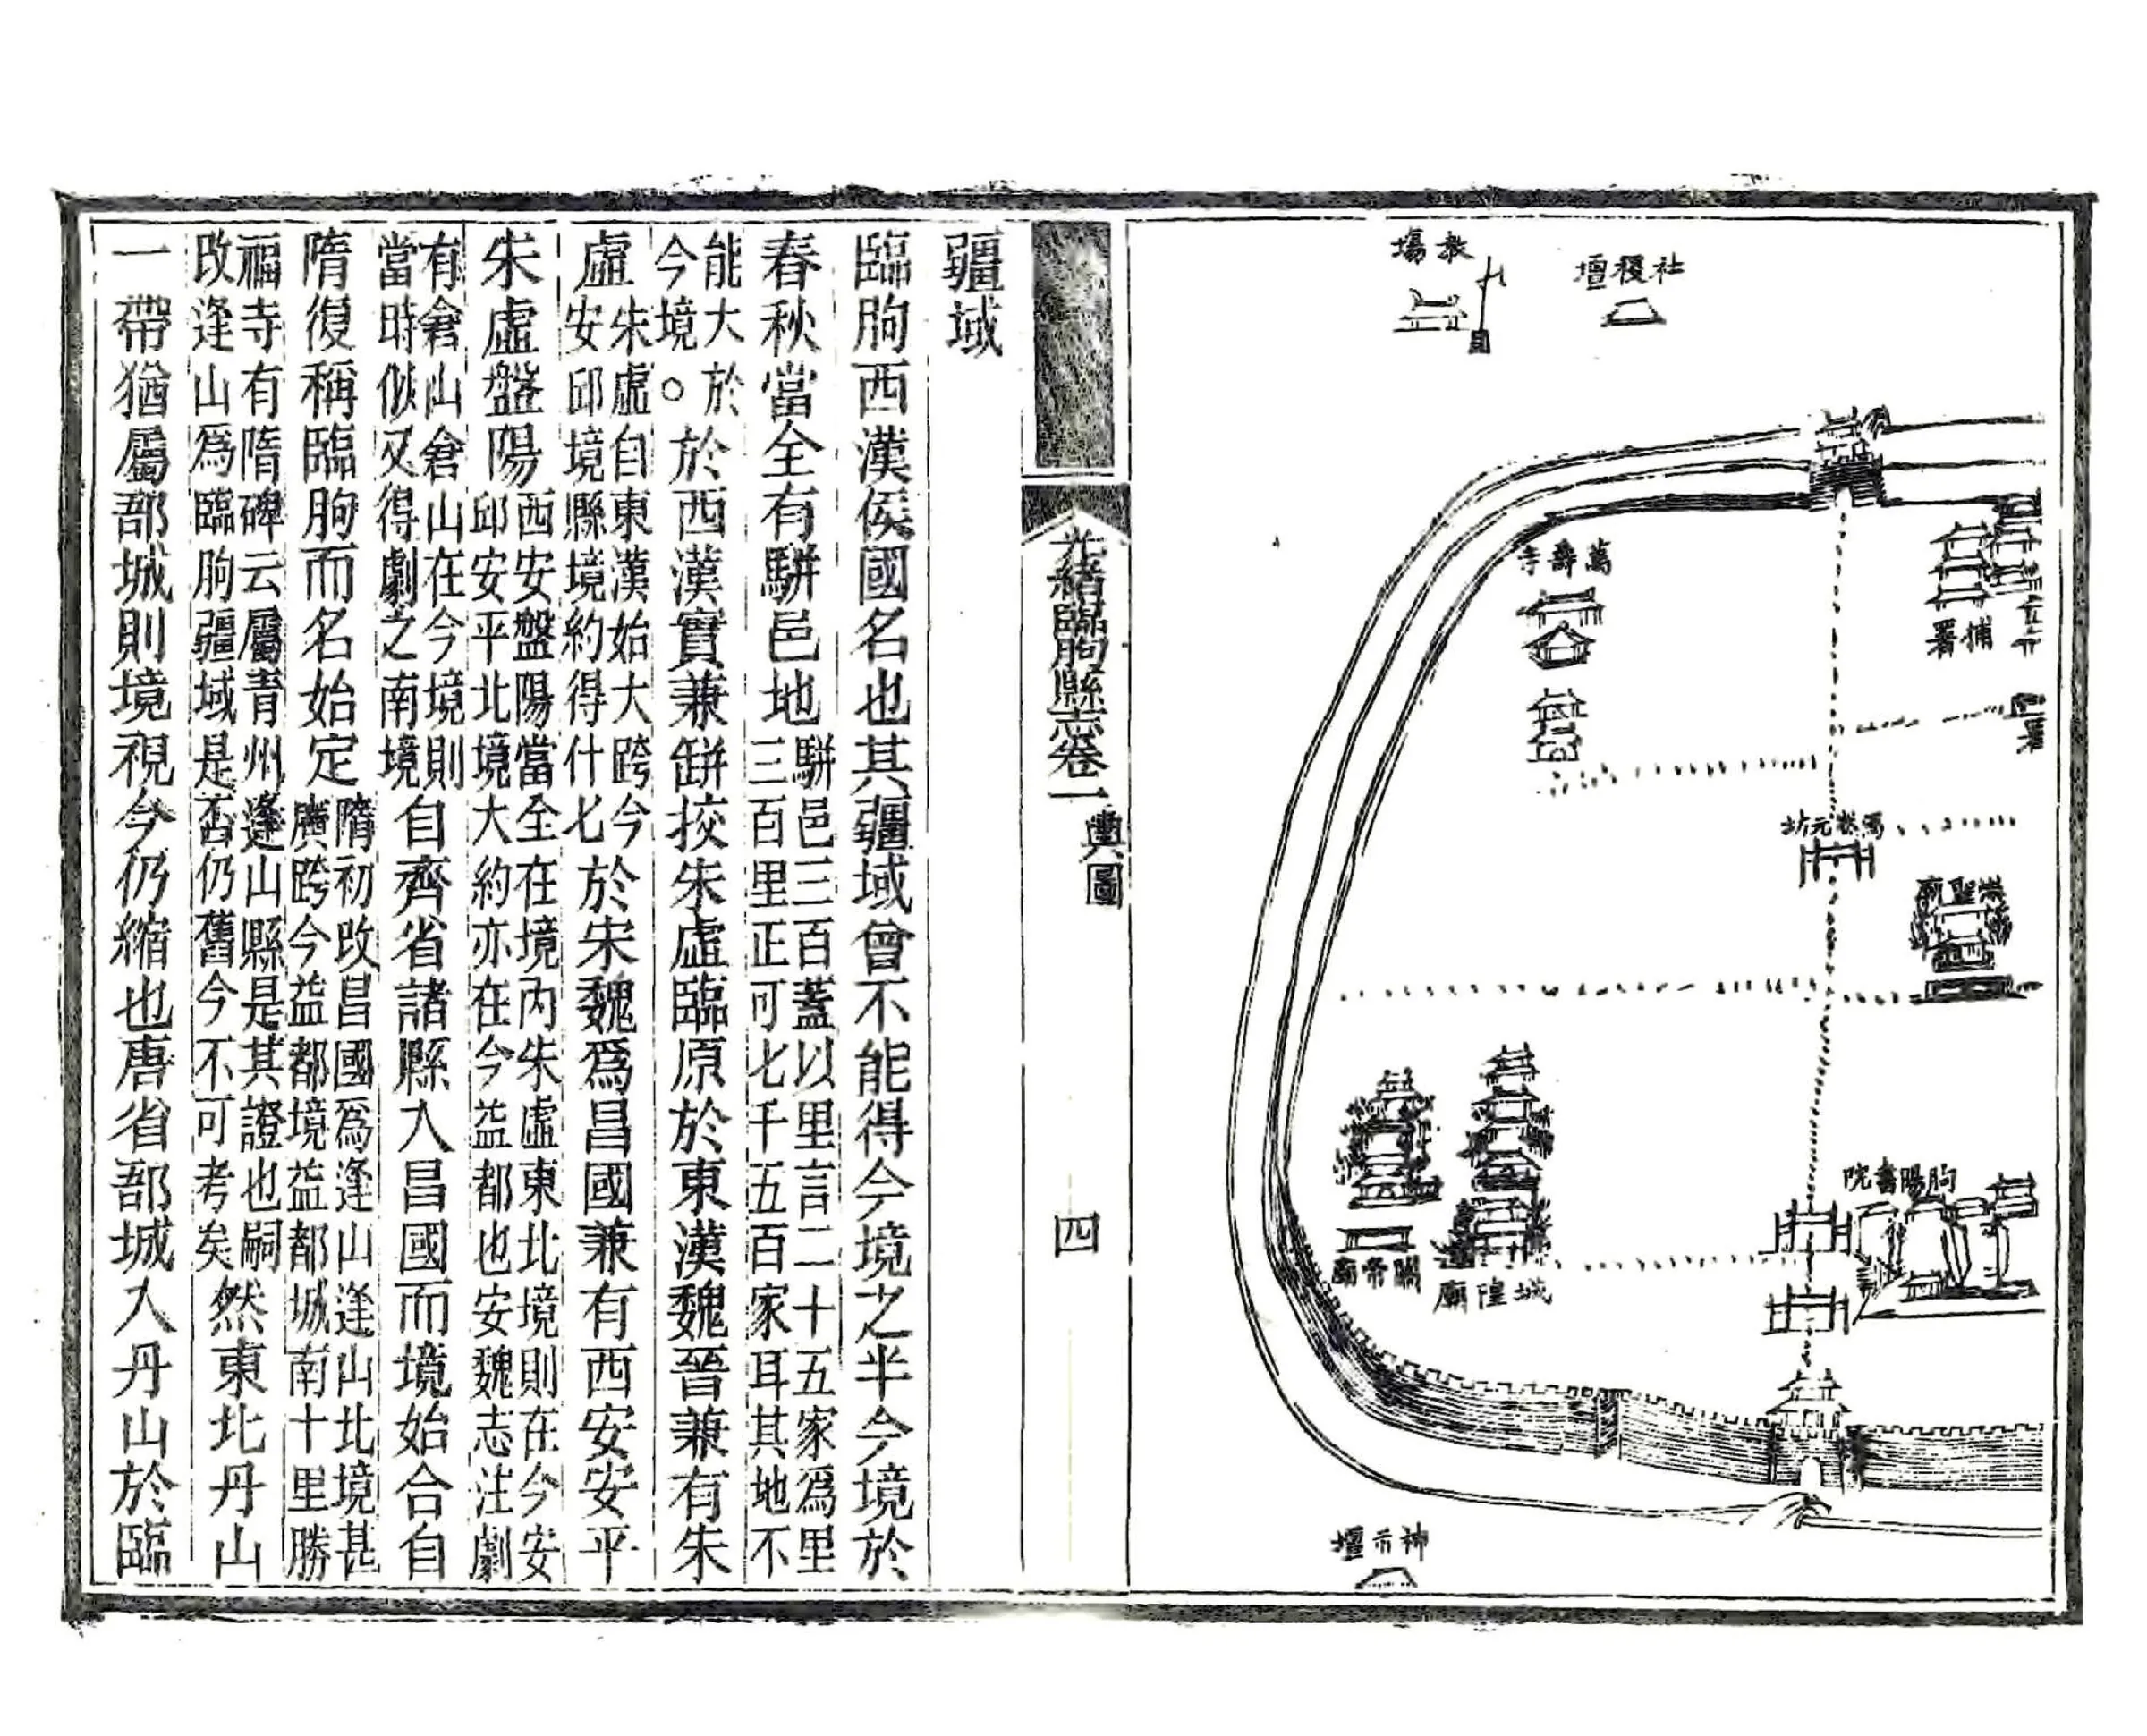 社稷壇
教場
捕署
萬壽寺
馮狀元坊
崇聖廟
朐陽書院
城隍廟
關帝廟
神示壇
光緒臨朐縣志卷一
輿圖
四
疆域
臨朐西漢侯國名也其疆域曾不能得今境之半今境於
春秋當全有駢邑地
駢邑三百蓋以里言二十五家爲里
三百里正可七千五百家耳其地不
能大於
今境。
於西漢實兼缾挍朱虛臨原於東漢魏晉兼有朱
虛
朱虛自東漢始大跨今
安邱境縣境約得什七
於宋魏爲昌國兼有西安安平
朱虛盤陽
西安盤陽當全在境內朱虛東北境則在今安
邱安平北境大約亦在今益都也安魏志注劇
有倉山倉山在今境則
當時似又得劇之南境
自齊省諸縣入昌國而境始合自
隋復稱臨朐而名始定
隋初改昌國爲逢山逢山北境甚
廣跨今益都境益都城南十里勝
福寺有隋碑云屬青州逢山縣是其證也嗣
改逢山爲臨朐疆域是否仍舊今不可考矣
然東北丹山
一帶猶屬郚城則境視今仍縮也唐省郚城入丹山於臨